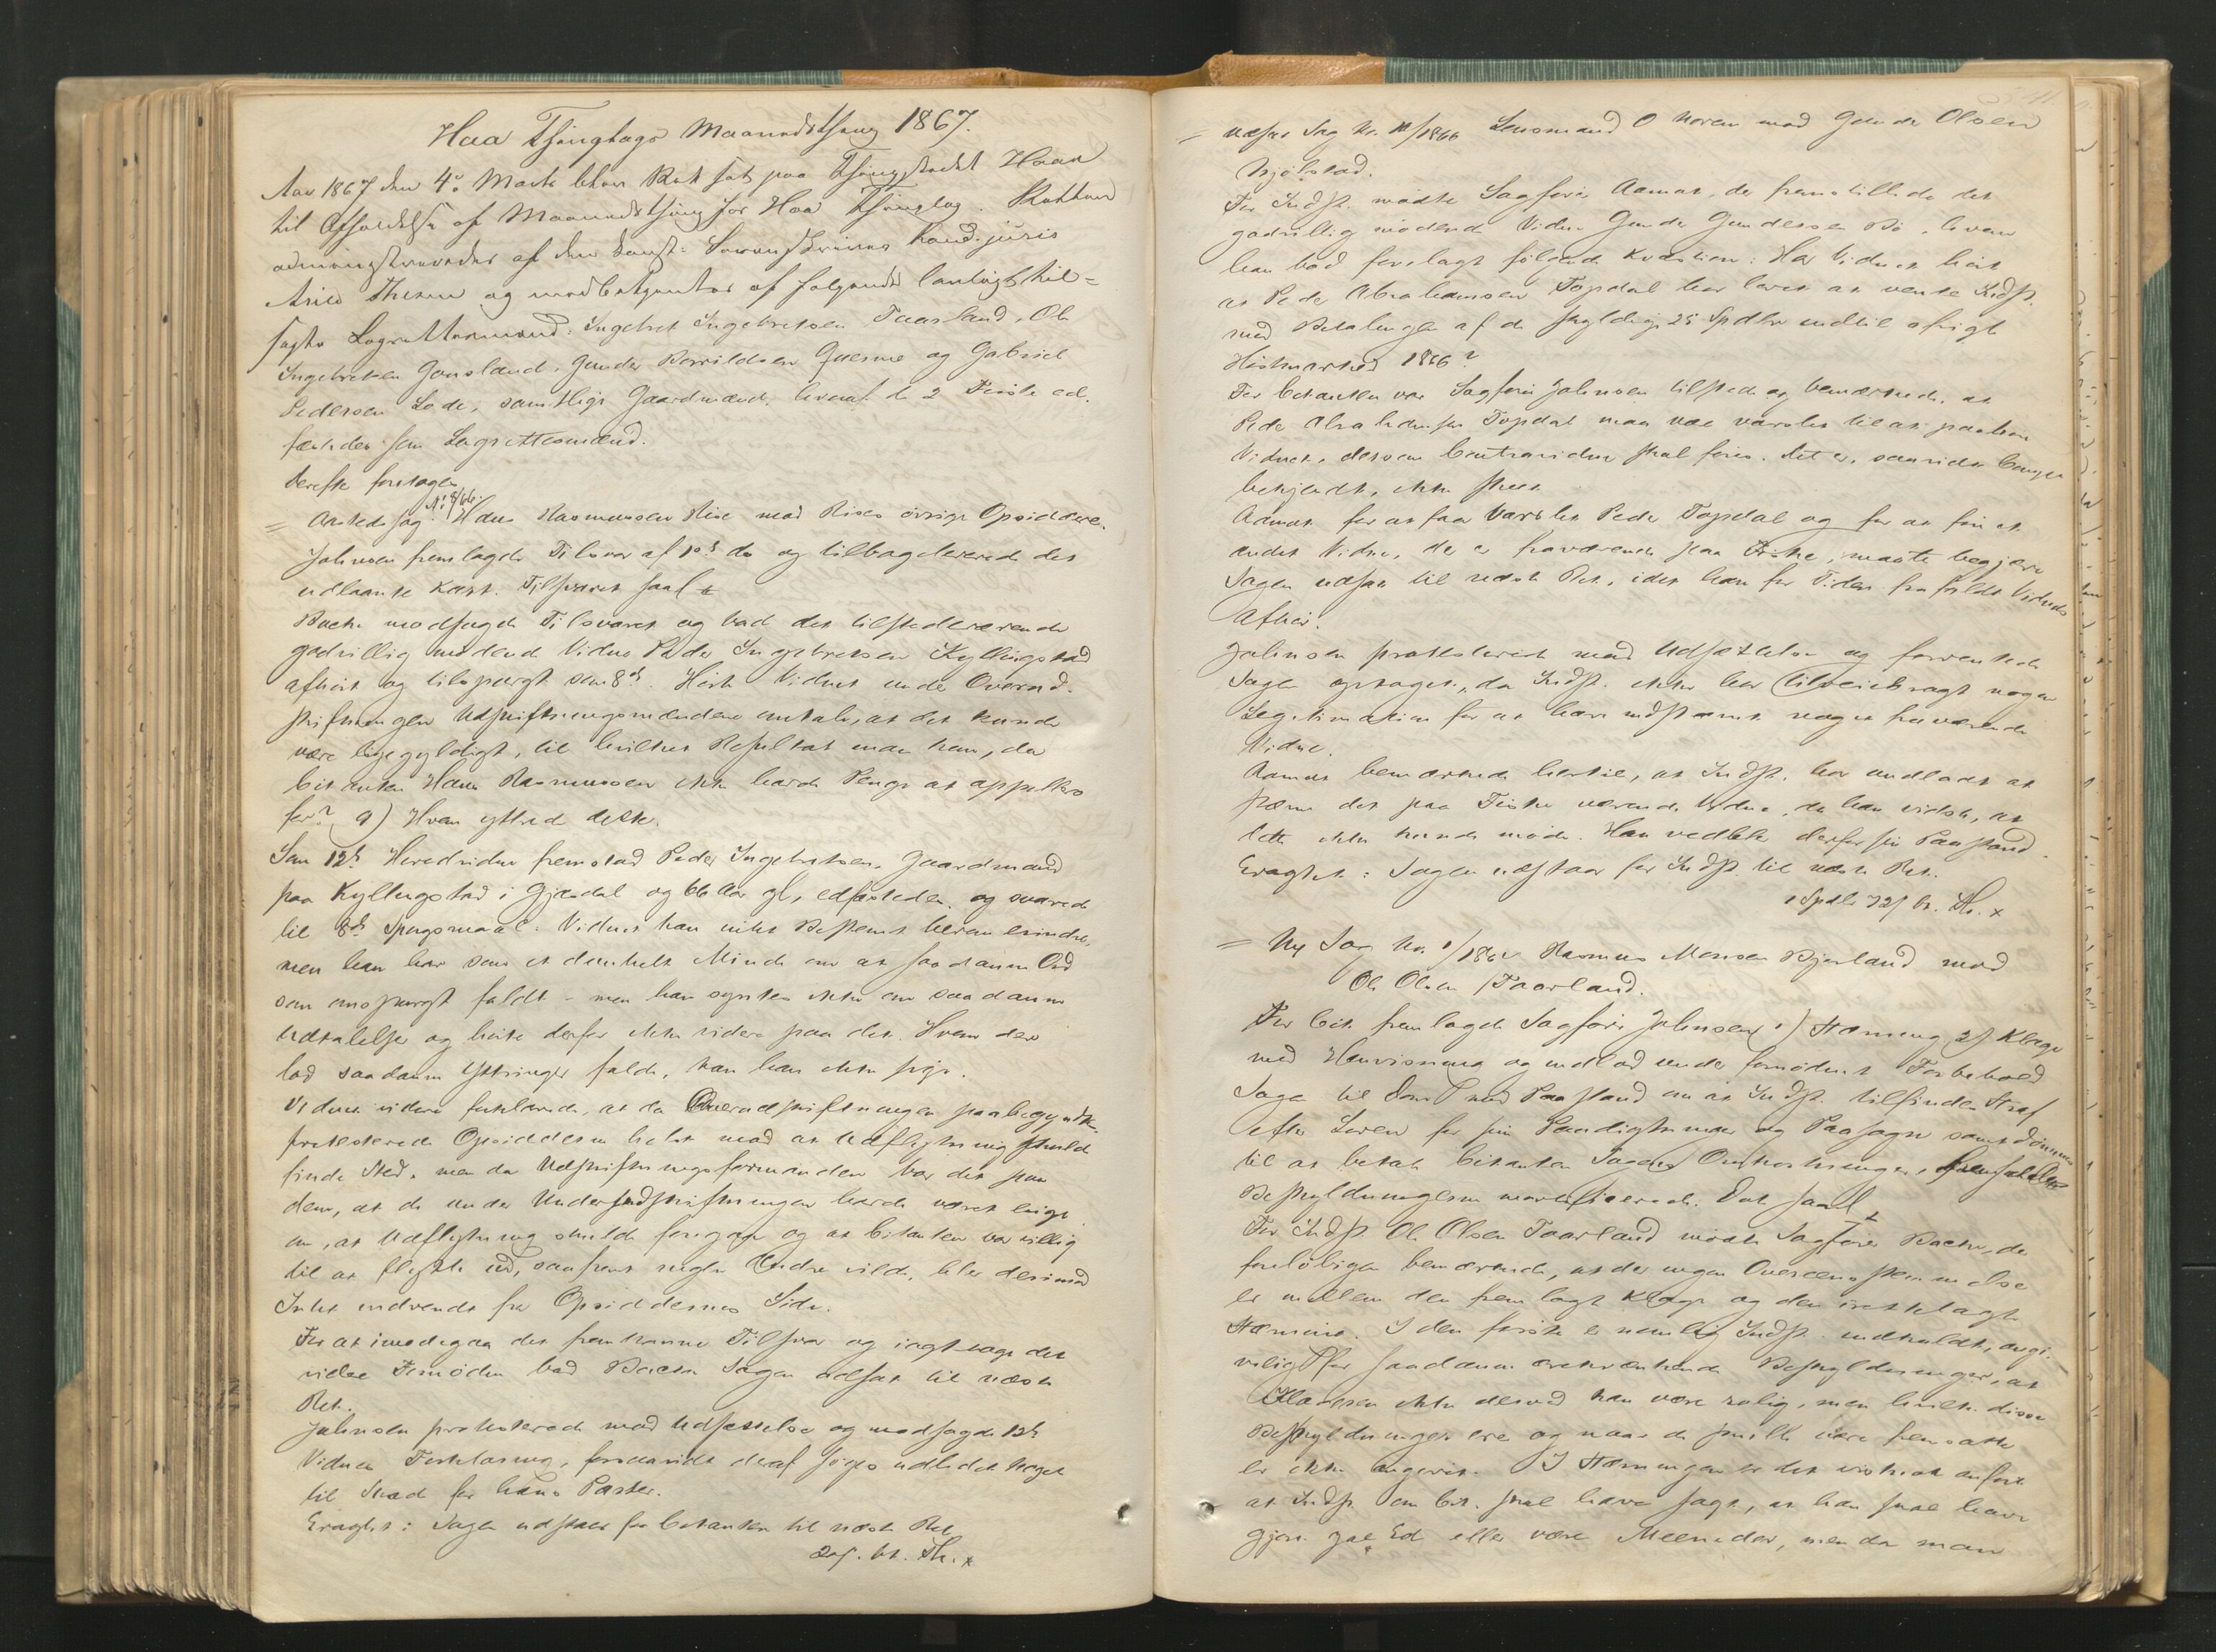 Haa Thinglags Maanedsthing 1867.
Aar 1867 den 4de Marts blev Ret sat paa Thingstedet Haar
til Afholdelse af Maanedsthing for Haa Thinglag. Retten
administreredes af den const: Sorenskriver Cand. juris
Thesen og medbetjentes af følgende lovligt til-
sagte Lagrettesmænd: Ingebret Ingebretsen Taarland, Ole
Ingebretsen Gousland, Gunder Gunder og Gabriel
Pedersen Lode, samtlige Gaardmænd, hvoraf de 2 Første ed-
fæstedes som Lagrettesmænd.
Derefter foretoges
= Aastedssag No 8/66. Hans Rasmussen Rise mod Rises øvrige Opsiddere.
Johnsen fremlagde Tilsvar af 1ste ds og tilbageleverede det
udlaante Kart. Tilsvaret saal.
Backe modsagde Tilsvaret og bad det tilstedeværende
godvillig mødende Vidne Peder Ingebretsen Kyllingstad
afhørt og tilspurgt som 8de. Hørte Vidnet under Overud-
skiftningen Udskiftningsmændene omtale, at det kunde
være ligegyldigt, til hvilket Resultat man kom, da
Citanten Hans Rasmussen ikke havde Penge at appellere
for? 9) Hvem yttrede dette.
Som 12te Hovedvidne fremstod Peder Ingebretsen, Gaardmand
paa Kyllingstad i Gjesdal og 66 Aar gl, edfæstedes og svarede
til 8de Spørgsmaal: Vidnet kan intet Bestemt herom erindre,
men han har som et dunkelt Minde om at saadanne Ord
som omspurgt faldt - men han syntes ikke om saadanne
Udtalelser og hørte derfor ikke videre paa det. Hvem der
lod saadanne Yttringer falde, kan han ikke sige.
Vidnet videre forklarede, at da Overudskiftningen paabegyndte
protesterede Opsidderne helst mod at Udflytning skulde
finde Sted, men da Udskiftningsformanden bar det paa
dem, at de under Underudskiftningen havde været enige
om, at Udflytning skulde foregaa og at Citanten var villig
til at flytte ud, saafremt ingen Andre vilde, blev derimod
Intet indvendt fra Opsiddernes Side.
For at imødegaa det fremkomne Tilsvar og iagttage det
videre Fornødne bad Backe Sagen udsat til næste
Ret.
Johnsen protesterede mod Udsættelse og modsagde 12te
Vidnes Forklaring, forsaavidt deraf søges udledet Noget
til Skade for hans Parter.
Eragtet: Sagen udstaar for Citanten til næste Ret
Th. x
= Udsat Sag No. 10/1866 Lensmand O Noren mod Gunder Olsen
Njølstad.
For Indst. mødte Sagfører Aamot, der fremstillede det
godvillig mødende Vidne Gunder Gundersen Bø, hvem
han bad forelagt følgende Kvæstion: Har Vidnet hørt
at Peder Abrahamsen Topdal har lovet at vente Indst.
med Betalingen af de skyldige 25 Spdlr indtil afvigte
Høstmarked 1866?
For Citanten var Sagfører Johnsen tilstede og bemærkede, at
Peder Abrahamsen Topdal maa være varslet til at paahøre
Vidnet, dersom Contravidne skal føres. Det er, saavidt Comp.
bekjendt, ikke skeet.
Aamot for at faa varslet Peder Topdal og for at føre et
andet Vidne, der er fraværende paa Fiske, maatte begjære
Sagen udsat til næste Ret, idet han for Tiden frafaldt Vidnets
Afhør.
Johnsen protesterede mod Udsættelse og forventede
Sagen optaget, da Indst. ikke har tilveiebragt nogen
Legitimation for at have indstævnt noget fraværende
Vidne.
Aamot bemærkede hertil, at Indst. har undladt at
stævne det paa Fiske værende Vidne, da han vidste, at
dette ikke kunde møde. Han vedblev derfor sin Paastand.
Eragtet: Sagen udstaar for Indst. til næste Ret.
1 Spdlr 72 / bt. Th. x
= Ny Sag No. 1/186 Rasmus Monsen Bjorland mod
Ole Olsen Taarland.
For Cit. fremlagde Sagfører Johnsen 1) Stævning 2) Klage
med Henvisning og indlod under fornødent Forbehold
Sagen til Doms med Paastand om at Indst. tilfindes Straf
efter Loven for sine Paadigtninger og Paasagn samt dømmes
til at betale Citanten Sagens Omkostninger,
Beskyldningerne mortificerede. Dok. saal.
For Indst. Ole Olsen Taarland mødte Sagfører Backe, der
foreløbigen bemærkede, at der ingen Overensstemmelse
er mellem den fremlagte Klage og den irettelagte
Stævning. I den første er nemlig Indst. indkaldt, angi-
velig for saadanne ærekrænkende Beskyldninger, at
Klageren ikke derved kan være rolig, men hvilke disse
Beskyldninger ere og naar de skulle være fremsatte
er ikke angivet. I Stævningen er det vistnok anført
at Indst. om Cit. skal have sagt, at han skal have
gjort gal Ed eller være Meeneder, men da man